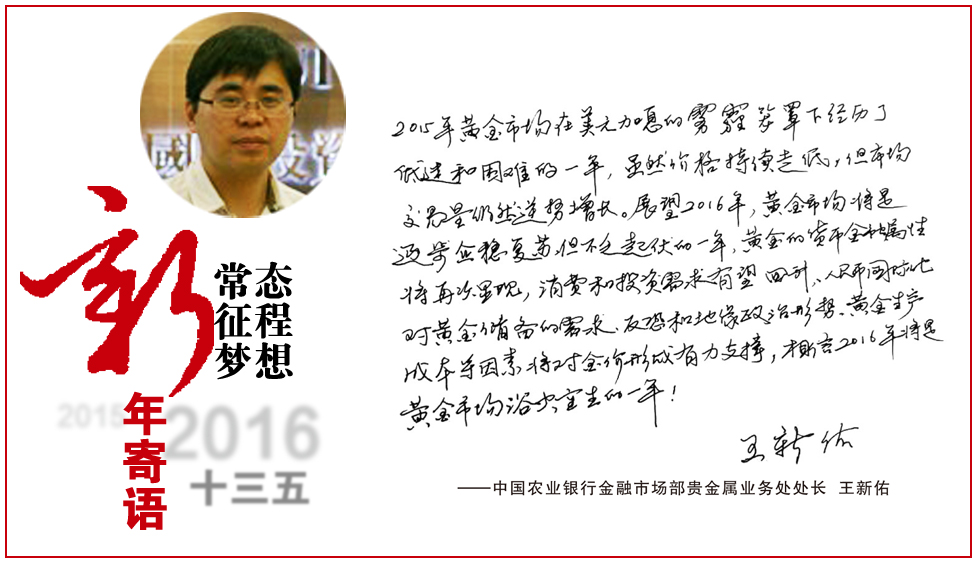 新
常态
征程
梦想
年寄语
2015
2016
十三五
2015年黄金市场在美元加息的雾霾笼罩下经历了
低迷和困难的一年，虽然价格持续走低，但市场
交易量仍然逆势增长。展望2016年，黄金市场将是
逐步企稳复苏但不乏起伏的一年，黄金的货币金融属性
将再次显现，消费和投资需求有望回升、人民币国际化
对黄金储备的需求、反恐和地缘政治形势、黄金生产
成本等因素将对金价形成有力支撑，相信2016年将是
黄金市场浴火重生的一年！
王新佑
——中国农业银行金融市场部贵金属业务处处长 王新佑